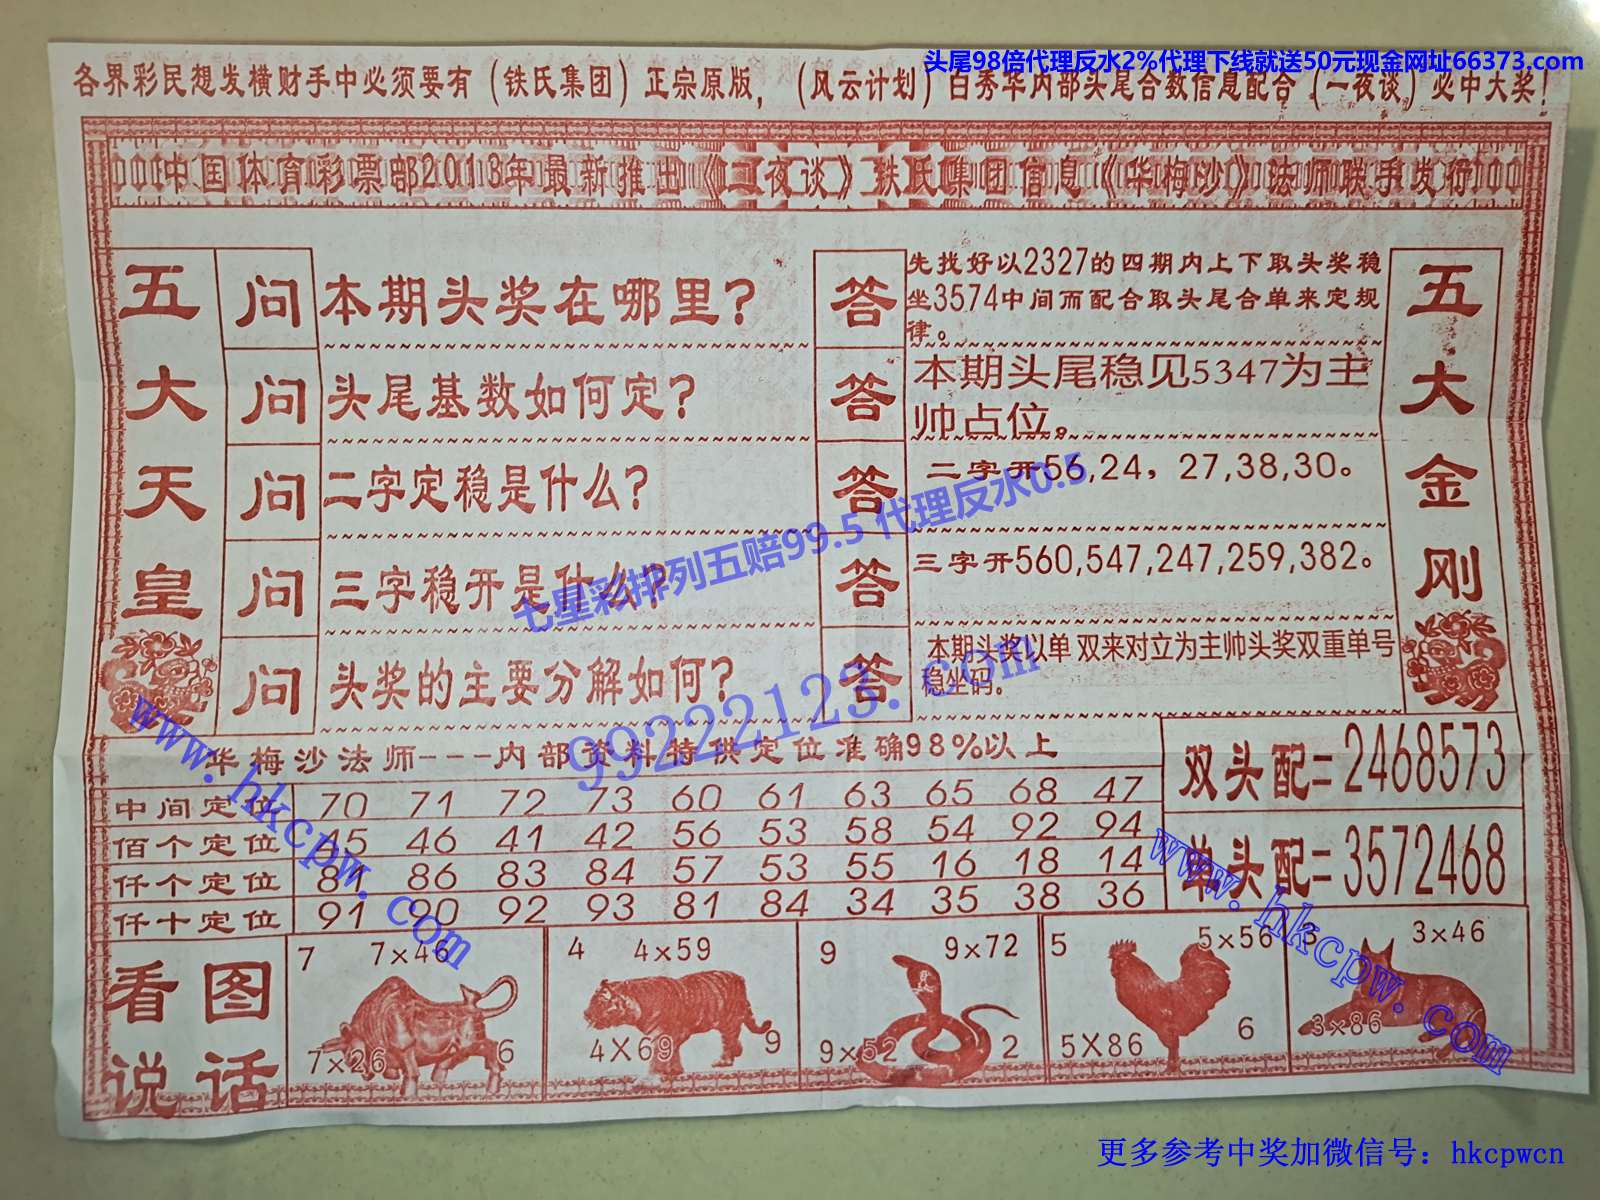 头尾98倍代理反水2%代理下线就送50元现金网址66373.com
各界彩民想发横财手中必须要有(铁氏集团)正宗原版,(风云计划)白秀华内部头尾合数信息配合(一夜谈)必中大奖!
中国体育彩票部2013年最新推出《一夜谈》铁氏集团信息《华梅沙》法师联手发行
五大天皇
问 本期头奖在哪里?
答 先找好以2327的四期内上下取头奖稳
坐3574中间而配合取头尾合单来定规
律。
问 头尾基数如何定?
答 本期头尾稳见5347为主
帅占位。
问 二字定稳是什么?
答 二字开56,24,27,38,30。
问 三字稳开是什么?
答 三字开560,547,247,259,382。
问 头奖的主要分解如何?
答 本期头奖以单双来对立为主帅头奖双重单号
稳坐码。
五大金刚
七星彩排列五赔99.5 代理反水0.5
99222123.com
www.hkcpw.com
www.hkcpw.com
华梅沙法师---内部资料特供定位准确98%以上
中间定位 70 71 72 73 60 61 63 65 68 47
佰个定位 45 46 41 42 56 53 58 54 92 94
仟个定位 81 86 83 84 57 53 55 16 18 14
仟十定位 91 90 92 93 81 84 34 35 38 36
双头配=2468573
单头配=3572468
看图
说话
7 7×46
7×26 6
4 4×59
4X69 9
9 9×72
9×52 2
5 5×56
5X86 6
3 3×46
3×86
更多参考中奖加微信号:hkcpwcn